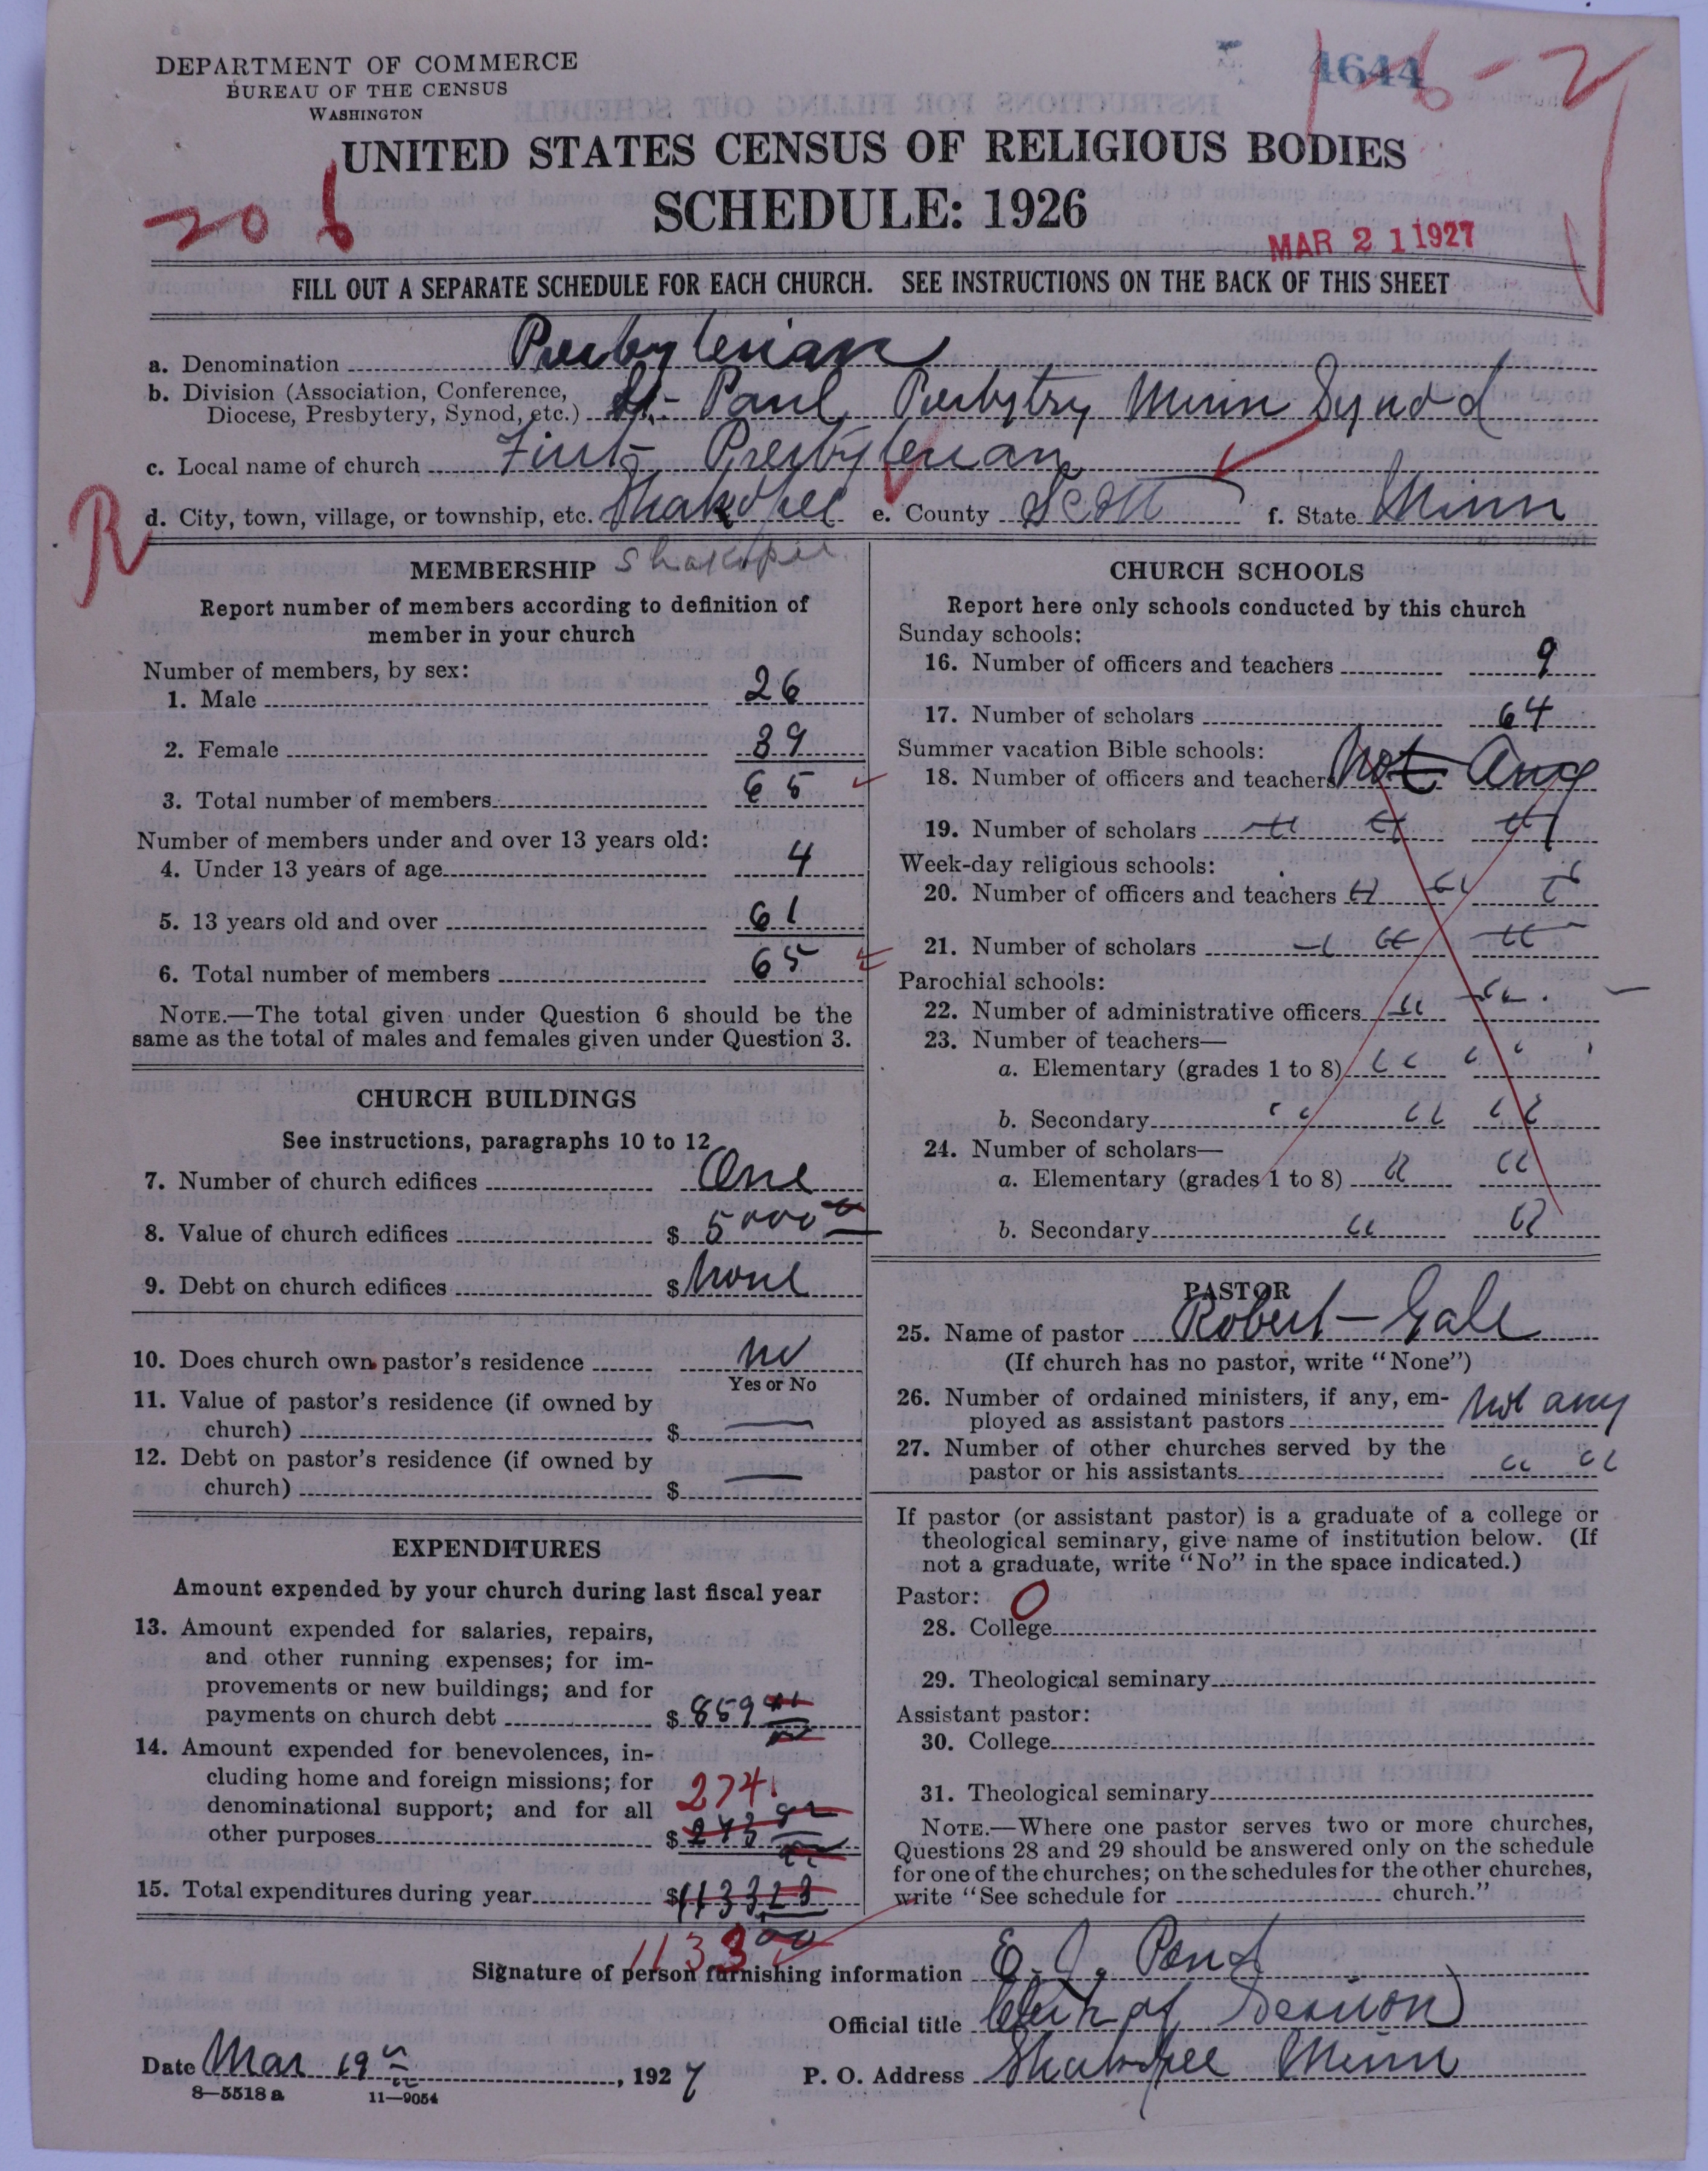 DEPARTMENT OF COMMERCE
BUREAU OF THE CENSUS
WASHINGTON
4644
16-2
UNITED STATES CENSUS OF RELIGIOUS BODIES
SCHEDULE: 1926
206
MAR 21 1927
FILL OUT A SEPARATE SCHEDULE FOR EACH CHURCH. SEE INSTRUCTIONS ON THE BACK OF THIS SHEET
a. Denomination Presbyterian
b. Division (Association, Conference,
Diocese, Presbytery, Synod, etc.) St. Paul Presbytry Minn Synod
c. Local name of church First Presbyterian
R
d. City, town, village, or township, etc. Shakopee e. County Scott f. State Minn
MEMBERSHIP Shakopee
Report number of members according to definition of
member in your church
Number of members, by sex:
1. Male 26
2. Female 39
3. Total number of members 65
Number of members under and over 13 years old:
4. Under 13 years of age 4
5. 13 years old and over 61
6. Total number of members 65
NOTE.—The total given under Question 6 should be the
same as the total of males and females given under Question 3.
CHURCH BUILDINGS
See instructions, paragraphs 10 to 12
7. Number of church edifices One
8. Value of church edifices $ 5000 00
9. Debt on church edifices $ None
10. Does church own pastor's residence No
Yes or No
11. Value of pastor's residence (if owned by
church) $ —
12. Debt on pastor's residence (if owned by
church) $ —
EXPENDITURES
Amount expended by your church during last fiscal year
13. Amount expended for salaries, repairs,
and other running expenses; for im-
provements or new buildings; and for
payments on church debt $ 859
14. Amount expended for benevolences, in-
cluding home and foreign missions; for
274
denominational support; and for all
other purposes $ 273
15. Total expenditures during year $ 1133
1133 00
CHURCH SCHOOLS
Report here only schools conducted by this church
Sunday schools:
16. Number of officers and teachers 9
17. Number of scholars 64
Summer vacation Bible schools:
18. Number of officers and teachers Not Any
19. Number of scholars " " "
Week-day religious schools:
20. Number of officers and teachers " " "
21. Number of scholars " " "
Parochial schools:
22. Number of administrative officers " "
23. Number of teachers—
a. Elementary (grades 1 to 8) " "
b. Secondary " " "
24. Number of scholars—
a. Elementary (grades 1 to 8) " "
b. Secondary " "
PASTOR
25. Name of pastor Robert Gale
(If church has no pastor, write "None")
26. Number of ordained ministers, if any, em-
ployed as assistant pastors Not any
27. Number of other churches served by the
pastor or his assistants " "
If pastor (or assistant pastor) is a graduate of a college or
theological seminary, give name of institution below. (If
not a graduate, write "No" in the space indicated.)
Pastor: O
28. College
29. Theological seminary
Assistant pastor:
30. College
31. Theological seminary
NOTE.—Where one pastor serves two or more churches,
Questions 28 and 29 should be answered only on the schedule
for one of the churches; on the schedules for the other churches,
write "See schedule for church."
Signature of person furnishing information E. J. Pond
Official title Clerk of Session
Date Mar 19, 1927 P. O. Address Shakopee Minn
8—5518 a 11—9054